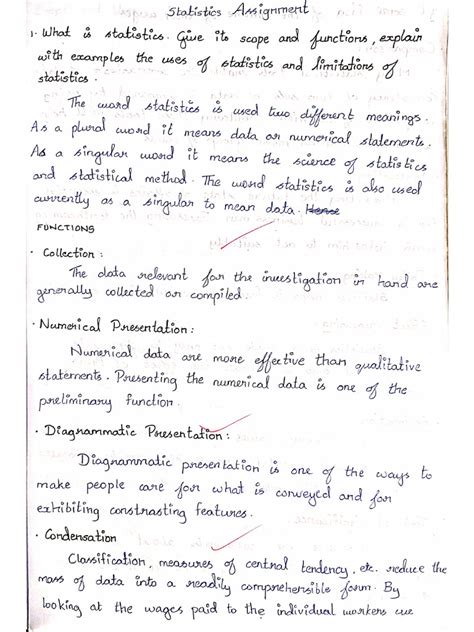 Statistics Assignment
1. What is statistics. Give its scope and functions, explain
with examples the uses of statistics and limitations of
statistics.
The word statistics is used two different meanings.
As a plural word it means data or numerical statements.
As a singular word it means the science of statistics
and statistical method. The word statistics is also used
currently as a singular to mean data. Hence
FUNCTIONS
• Collection :
The data relevant for the investigation in hand are
generally collected or compiled.
• Numerical Presentation :
Numerical data are more effective than qualitative
statements. Presenting the numerical data is one of the
preliminary function.
• Diagrammatic Presentation :
Diagrammatic presentation is one of the ways to
make people care for what is conveyed and for
exhibiting constrasting features.
• Condensation
Classification, measures of central tendency, etc. reduce the
mass of data into a readily comprehensible form. By
looking at the wages paid to the individual workers we